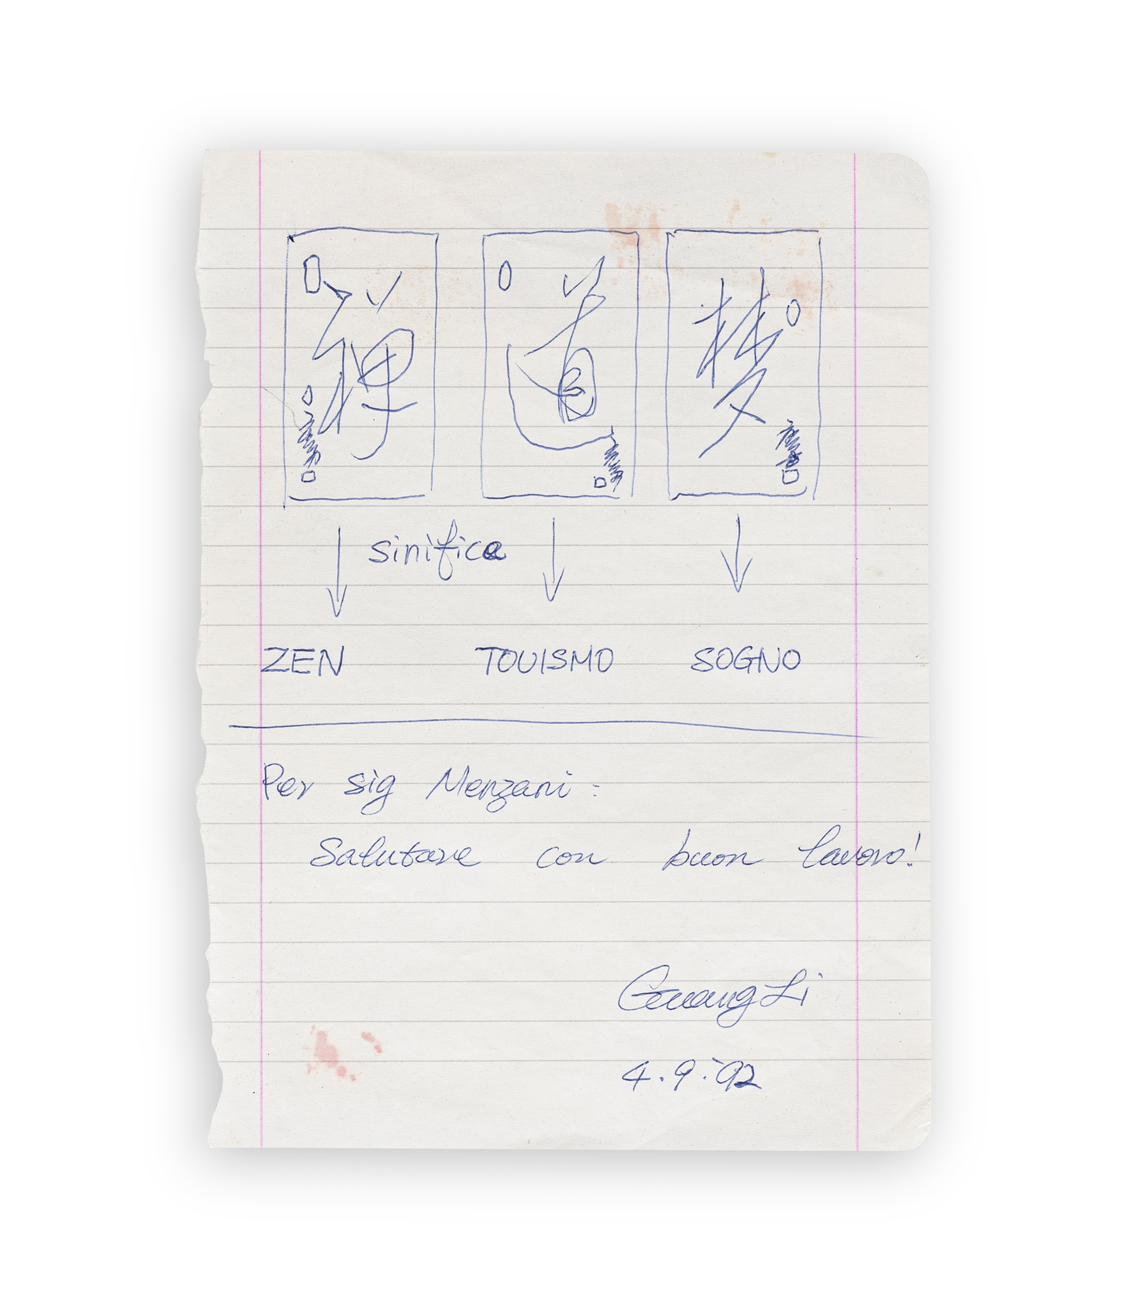 禅 道 梦
sinifica
ZEN TOUISMO SOGNO
Per sig Menzani:
Salutare con buon lavoro!
Guang Li
4.9.'92